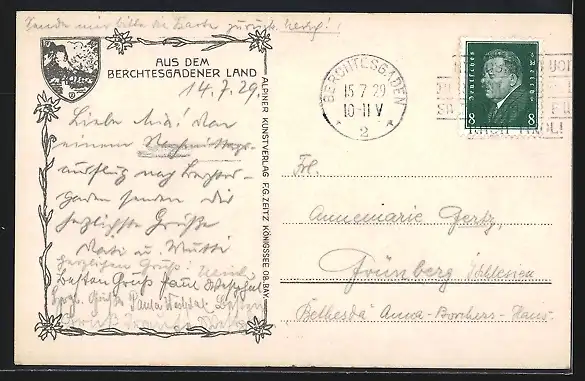 Sende mir bitte die Karte zurück.
AUS DEM
BERCHTESGADENER LAND
14.7.29.
Liebe Von
einem Nachmittags-
ausflug nach Berchtes-
gaden senden dir
herzlichste Grüße
Vati u. Mutti
herzlichen Gruss!
Besten Gruß Paul Westphal
herzl. Grüße Paula Westphal
ALPINER KUNSTVERLAG F.G. ZEITZ KÖNIGSSEE OB. BAY.
BERCHTESGADEN
15.7.29
10-11 V
* 2 *
Deutsches Reich
8 8
Frl.
Annemarie Gertz,
Grünberg Schlesien
"Bethesda" Anna-Borchers-Haus.